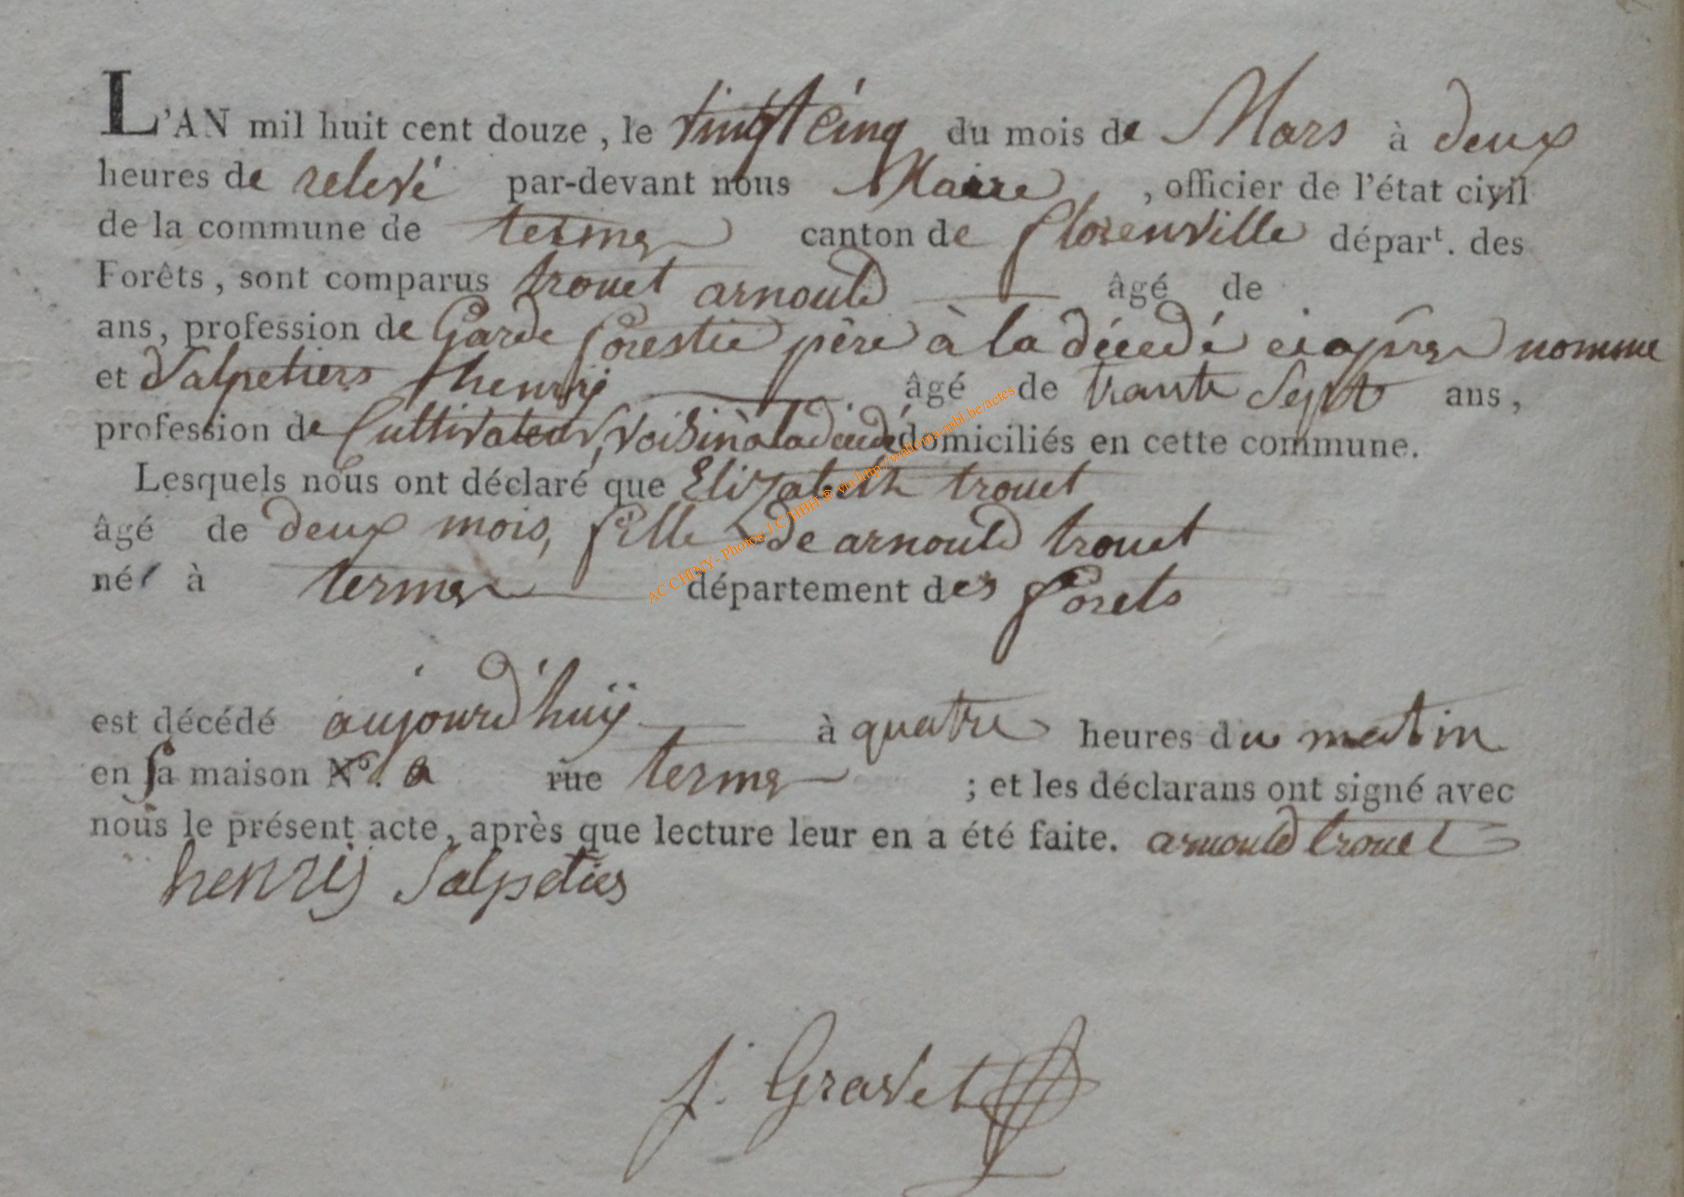 L'AN mil huit cent douze, le vingt cinq du mois de Mars à deux
heures de relevé par-devant nous Maire, officier de l'état civil
de la commune de termes canton de florenville départ. des
Forêts, sont comparus trouet arnould âgé de
ans, profession de Garde forestie père à la décedé ciapres nomme
et Salpetiers henrij âgé de trante Sept ans,
profession de Cultivateur, voisin à la décedé domiciliés en cette commune.
Lesquels nous ont déclaré que Elizabeth trouet
âgé de deux mois, fille de arnould trouet
né à termes département des forets
est décédé aujourd'huÿ à quatre heures du matin
en sa maison N.º a rue termes ; et les déclarans ont signé avec
nous le présent acte, après que lecture leur en a été faite. arnould trouet
henrij Salpeties
j. Gravet
AC CHINY - Photos J.C.